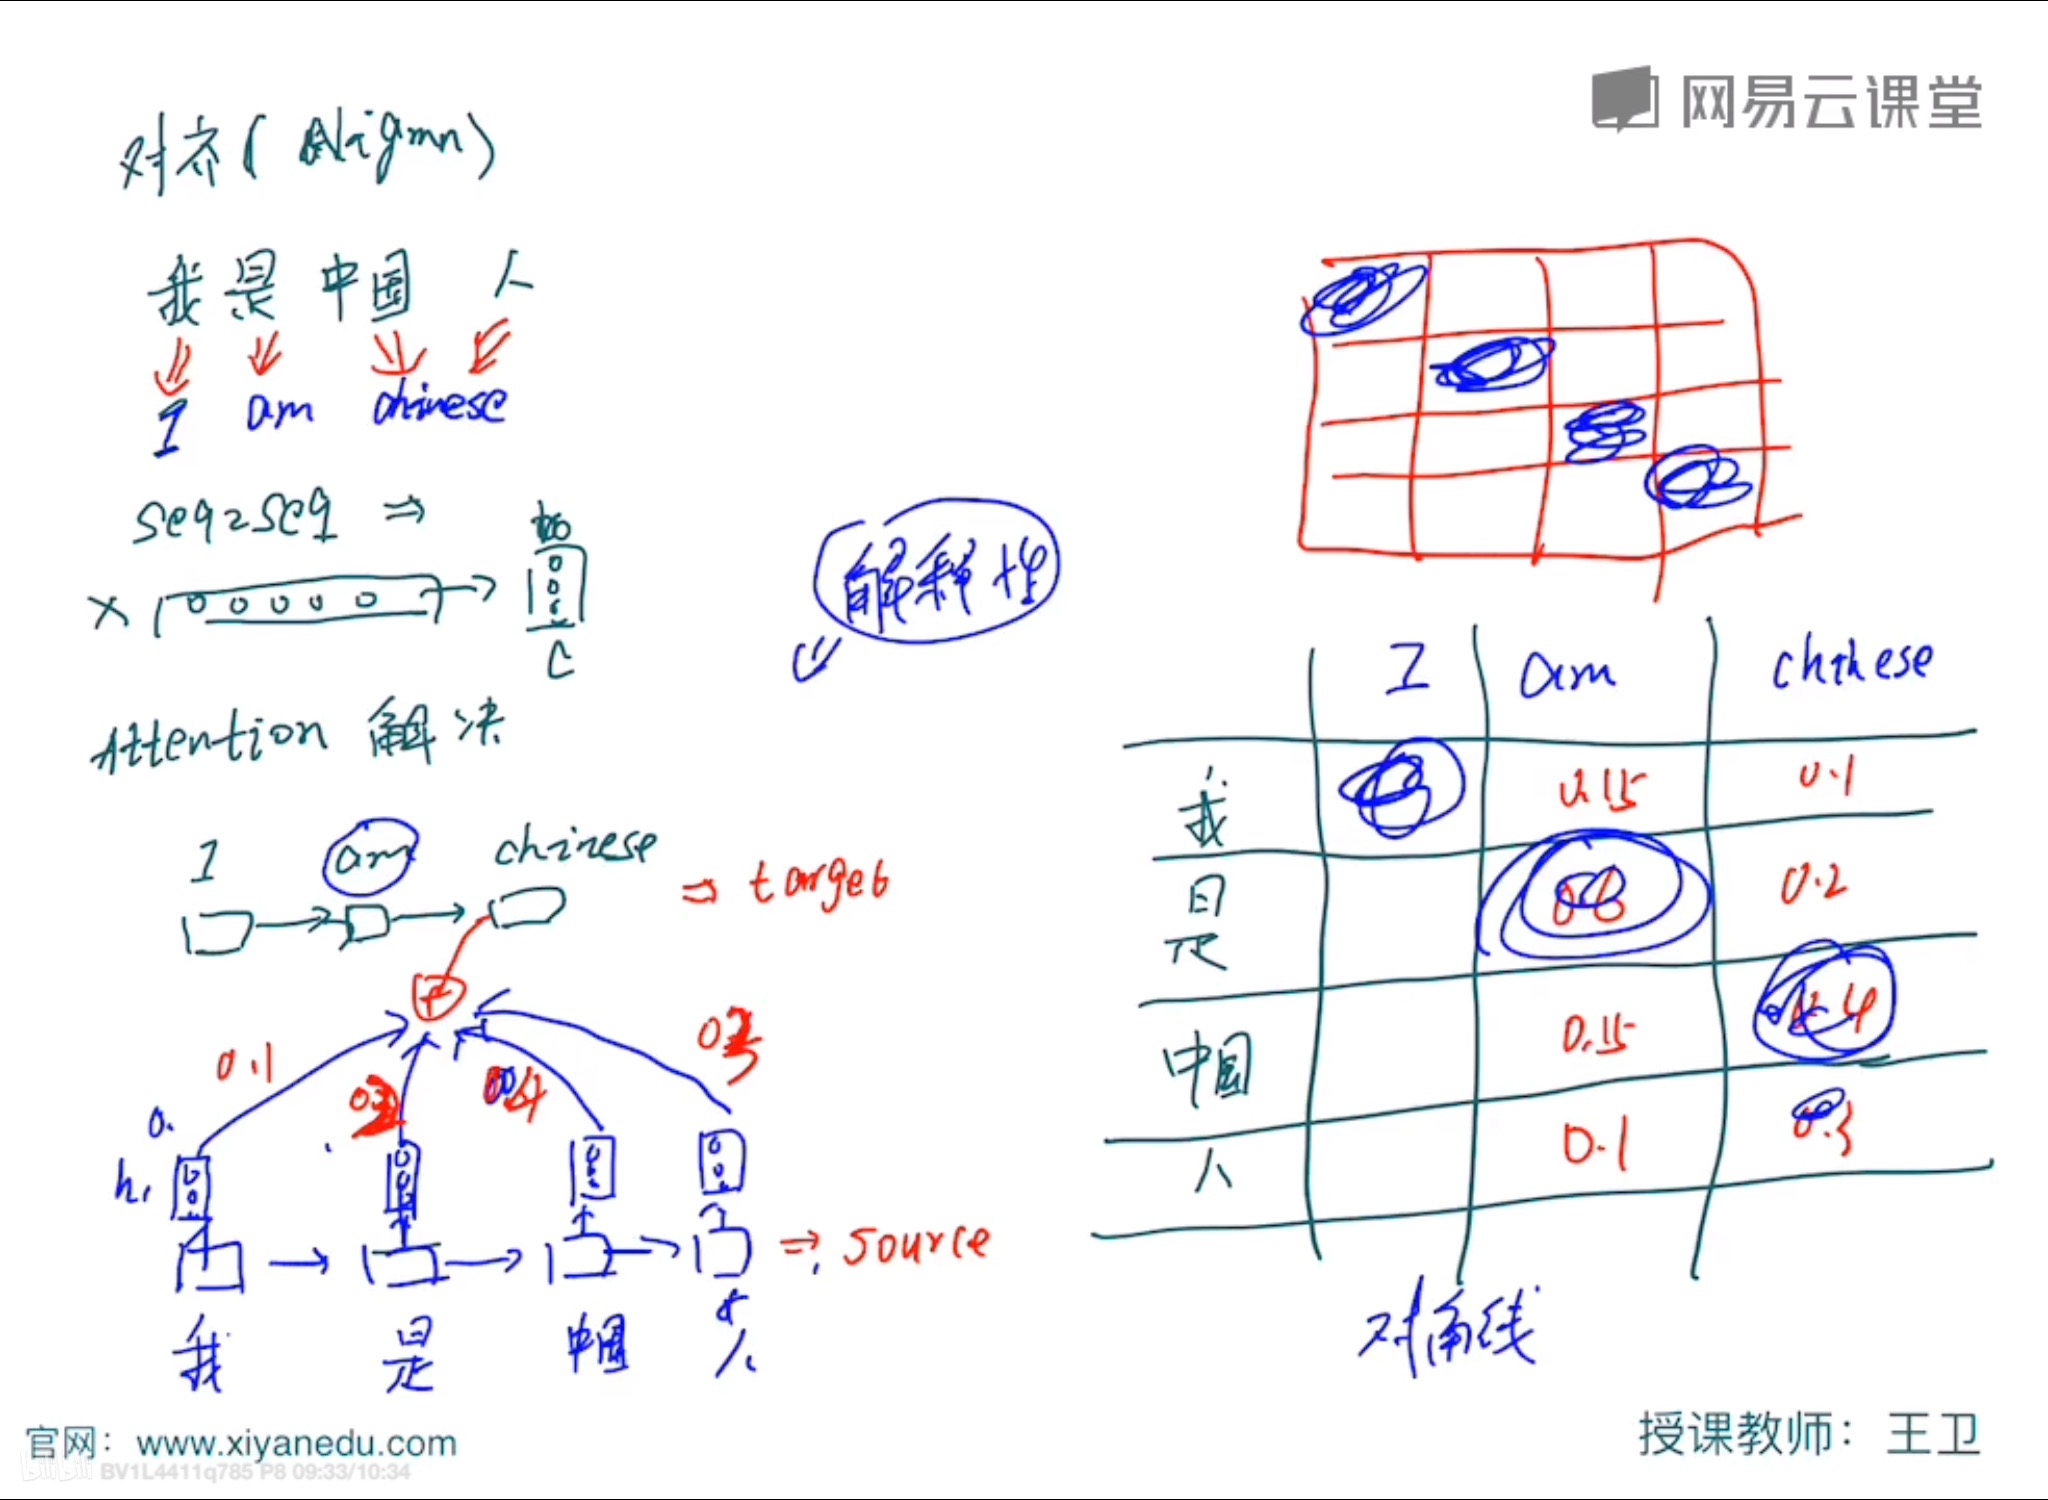 网易云课堂
对齐( Alignmn)
我是 中国 人
I am chinese
seq2seq ⇒
X
C
解释性
Attention 解决
I am chinese ⇒ target
0.1
0.4
h1
⇒ source
我 是 中国 人
I am chinese
我 0.15 0.1
是 0.6 0.2
中国 0.15 0.4
人 0.1 0.3
对角线
官网：www.xiyanedu.com
授课教师：王卫
bilibili BV1L4411q785 P8 09:33/10:34